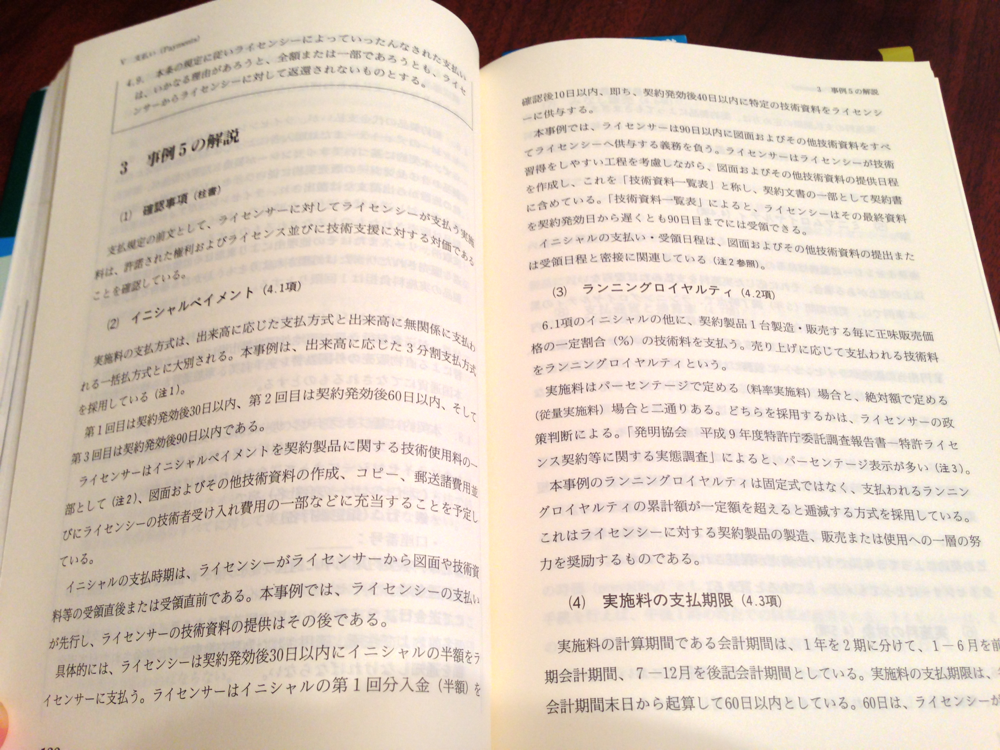 V 支払い (Payments)
4.9. 本条の規定に従いライセンシーによっていったんなされた支払い
は、いかなる理由があろうと、全額または一部であろうとも、ライセ
ンサーからライセンシーに対して返還されないものとする。
3 事例5の解説
(1) 確認事項（柱書）
支払規定の前文として、ライセンサーに対してライセンシーが支払う実施
料は、許諾された権利およびライセンス並びに技術支援に対する対価である
ことを確認している。
(2) イニシャルペイメント（4.1項）
実施料の支払方式は、出来高に応じた支払方式と出来高に無関係に支払わ
れる一括払方式とに大別される。本事例は、出来高に応じた3分割支払方式
を採用している（注1）。
第1回目は契約発効後30日以内、第2回目は契約発効後60日以内、そして
第3回目は契約発効後90日以内である。
ライセンサーはイニシャルペイメントを契約製品に関する技術使用料の一
部として（注2）、図面およびその他技術資料の作成、コピー、郵送諸費用並
びにライセンシーの技術者受け入れ費用の一部などに充当することを予定し
ている。
イニシャルの支払時期は、ライセンシーがライセンサーから図面や技術資
料等の受領直後または受領直前である。本事例では、ライセンシーの支払い
が先行し、ライセンサーの技術資料の提供はその後である。
具体的には、ライセンシーは契約発効後30日以内にイニシャルの半額をラ
イセンサーに支払う。ライセンサーはイニシャルの第1回分入金（半額）を
3 事例5の解説
確認後10日以内、即ち、契約発効後40日以内に特定の技術資料をライセンシ
ーに供与する。
本事例では、ライセンサーは90日以内に図面およびその他技術資料をすべ
てライセンシーへ供与する義務を負う。ライセンサーはライセンシーが技術
習得をしやすい工程を考慮しながら、図面およびその他技術資料の提供日程
を作成し、これを「技術資料一覧表」と称し、契約文書の一部として契約書
に含めている。「技術資料一覧表」によると、ライセンシーはその最終資料
を契約発効日から遅くとも90日目までには受領できる。
イニシャルの支払い・受領日程は、図面およびその他技術資料の提出また
は受領日程と密接に関連している（注2参照）。
(3) ランニングロイヤルティ（4.2項）
6.1項のイニシャルの他に、契約製品1台製造・販売する毎に正味販売価
格の一定割合（%）の技術料を支払う。売り上げに応じて支払われる技術料
をランニングロイヤルティという。
実施料はパーセンテージで定める（料率実施料）場合と、絶対額で定める
（従量実施料）場合と二通りある。どちらを採用するかは、ライセンサーの政
策判断による。「発明協会 平成9年度特許庁委託調査報告書―特許ライセ
ンス契約等に関する実態調査」によると、パーセンテージ表示が多い（注3）。
本事例のランニングロイヤルティは固定式ではなく、支払われるランニン
グロイヤルティの累計額が一定額を超えると逓減する方式を採用している。
これはライセンシーに対する契約製品の製造、販売または使用への一層の努
力を奨励するものである。
(4) 実施料の支払期限（4.3項）
実施料の計算期間である会計期間は、1年を2期に分けて、1－6月を前
期会計期間、7―12月を後記会計期間としている。実施料の支払期限は、
会計期間末日から起算して60日以内としている。60日は、ライセンシーが